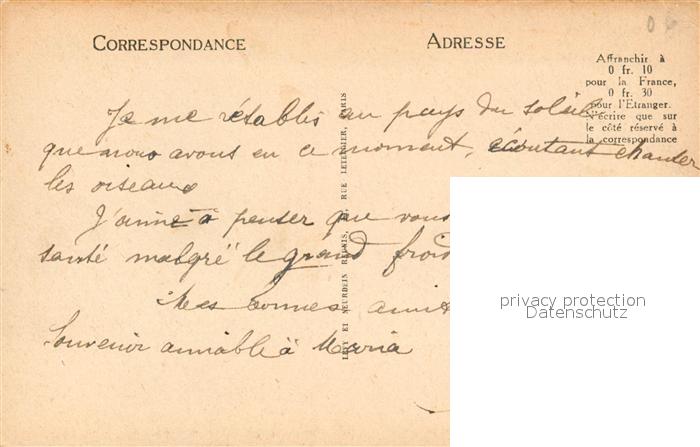 CORRESPONDANCE
ADRESSE
Affranchir à
0 fr. 10
pour la France,
0 fr. 30
pour l'Etranger.
N'écrire que sur
le côté réservé à
la correspondance
LEVY ET NEURDEIN REUNIS, RUE LETELLIER, PARIS
Je me rétablis au pays du soleil
que nous avons en ce moment, écoutant chanter
les oiseaux
J'aime à penser que vous
santé malgré le grand froid
Mes bonnes amit
Souvenir aimable à Maria
privacy protection
Datenschutz